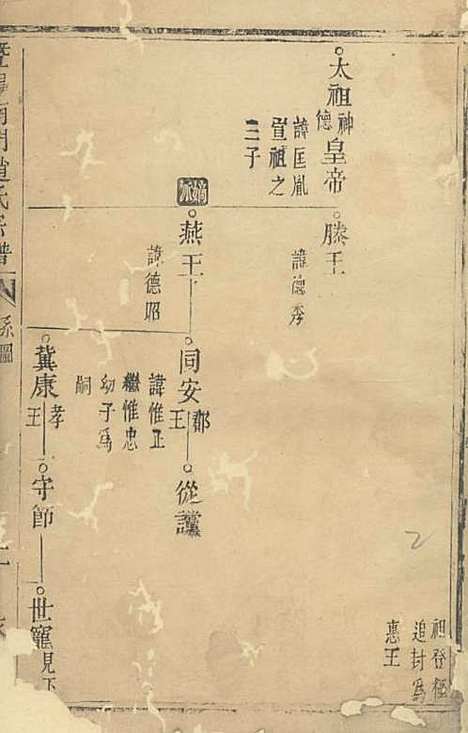 太祖神德皇帝
諱匡胤
宣祖之
二子
滕王
諱德秀
燕王
諱德昭
同安郡王
諱惟正
繼惟忠
幼子為
嗣
從讜
冀康孝王
守節
世寵見下
祖登極
追封為
惠王
趙氏宗譜
系圖
2